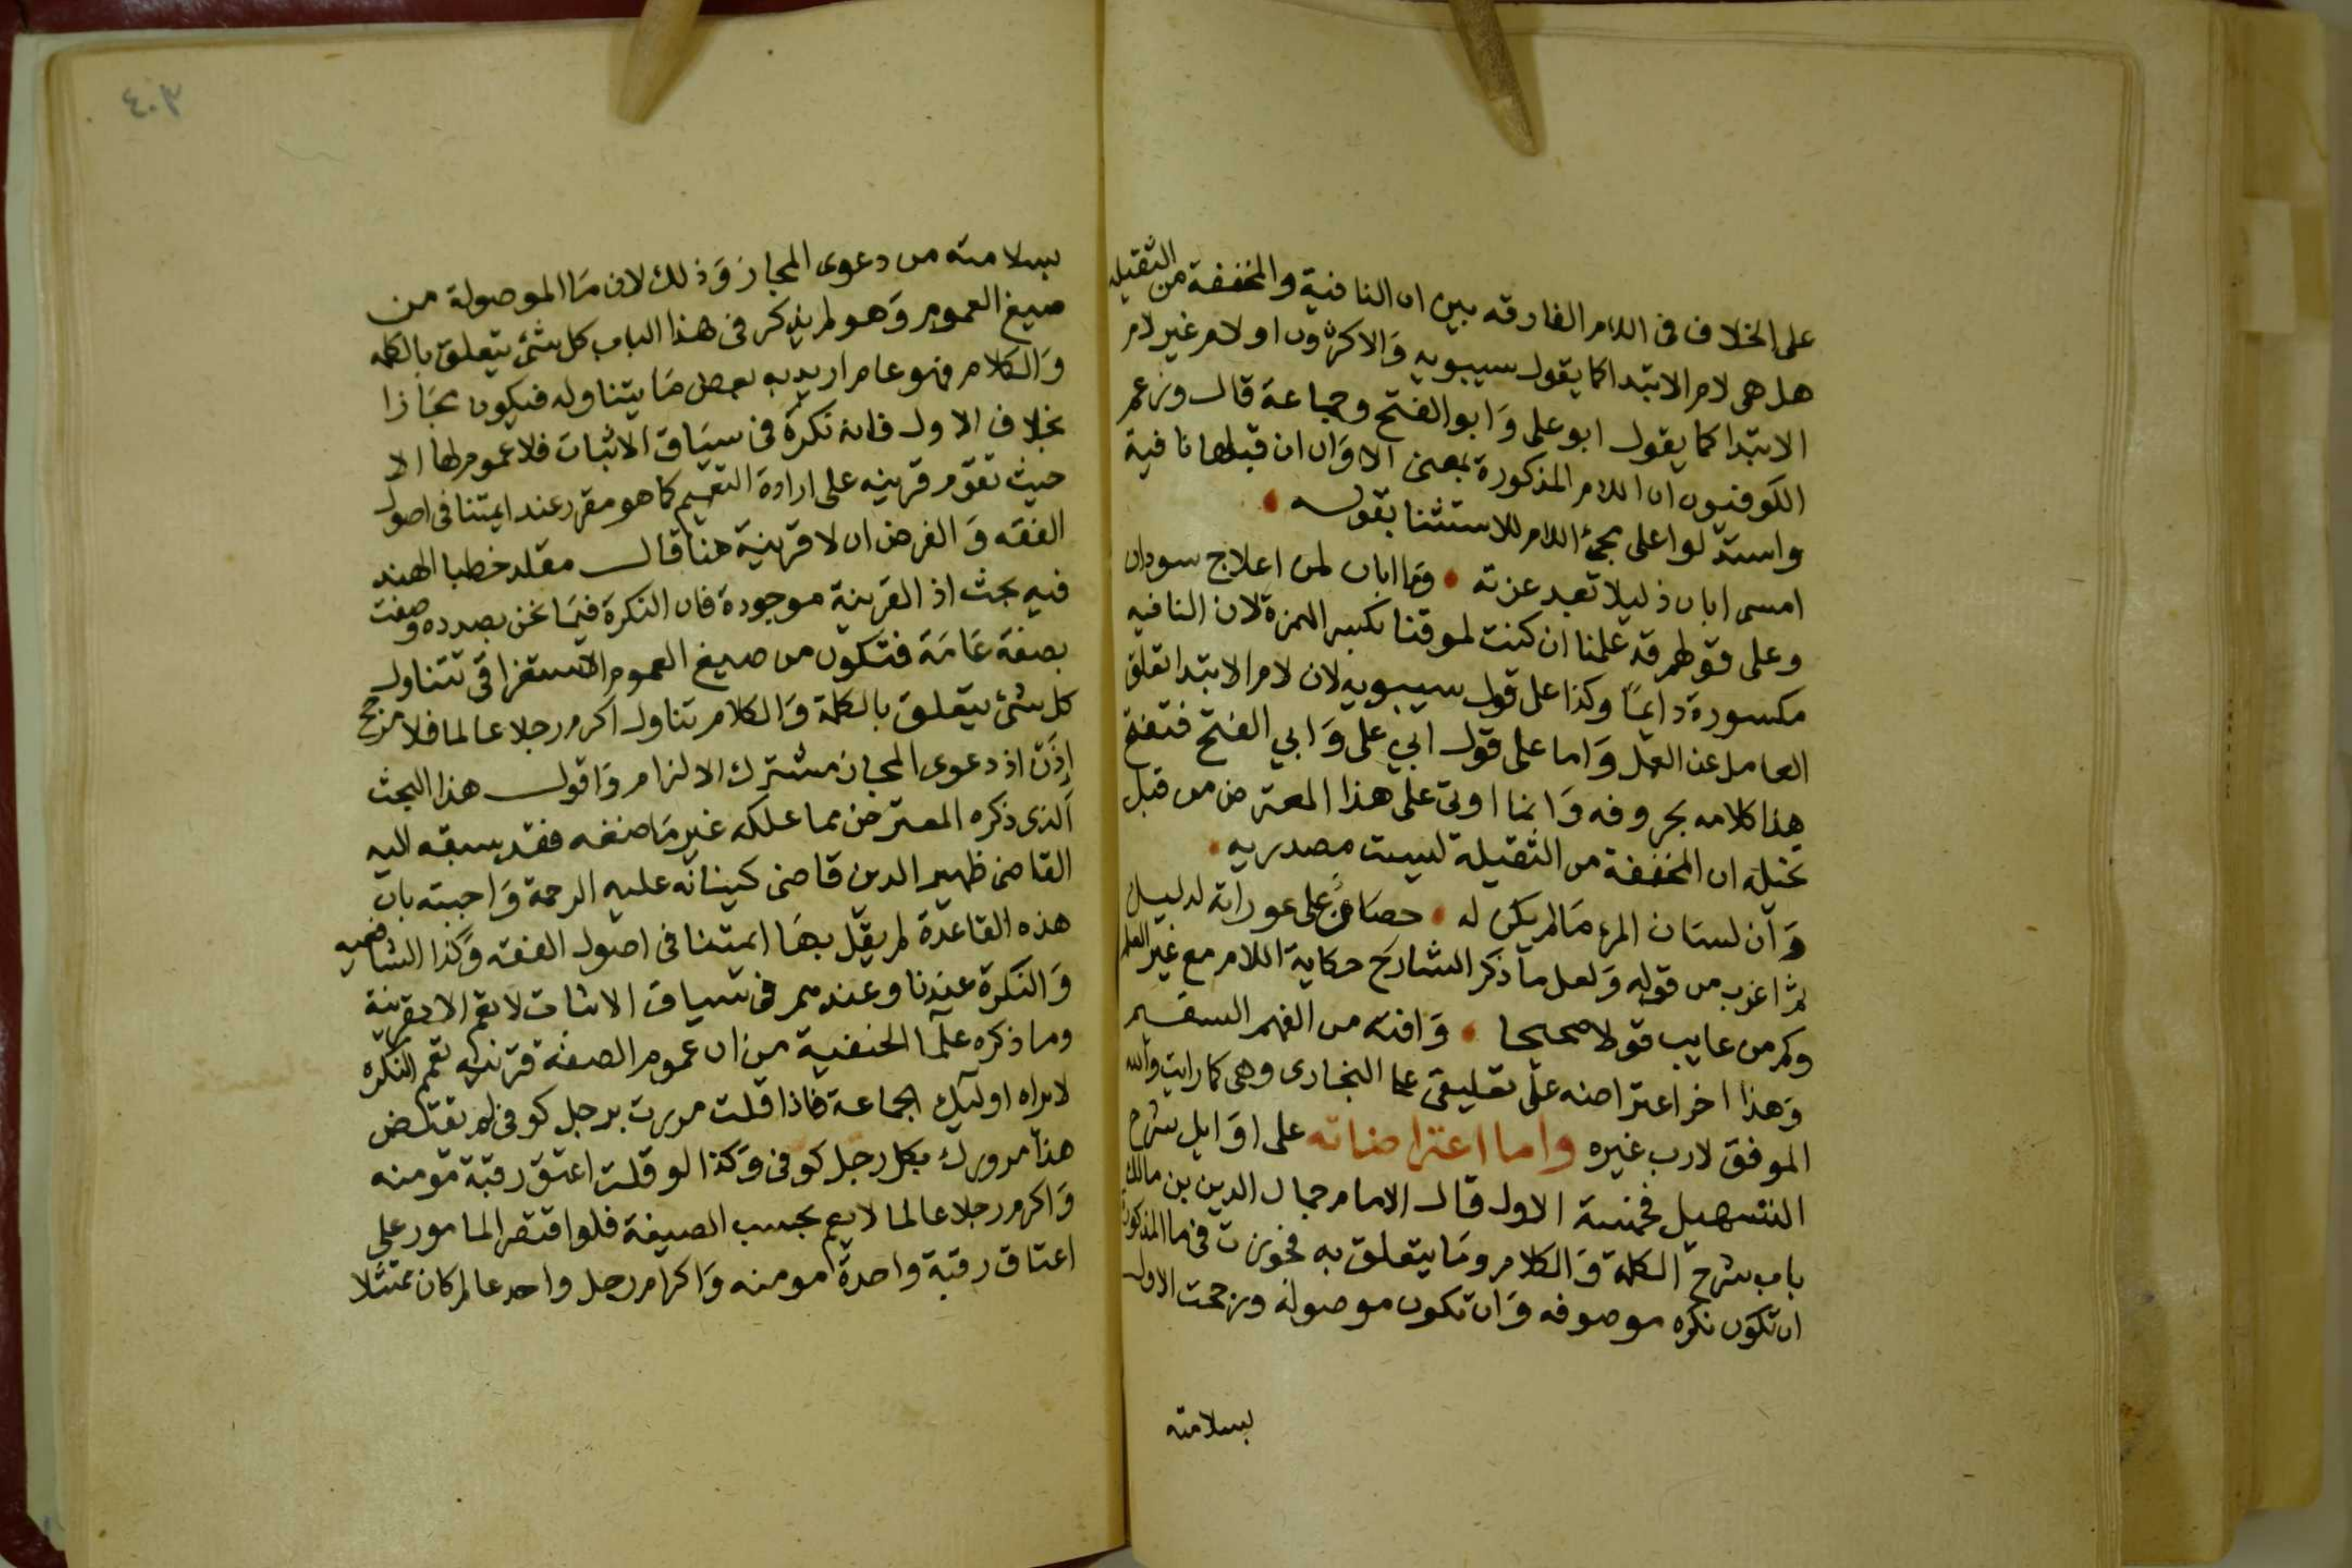 على الخلاف فى اللام الفارقه بين ان النافية والمخففة من الثقيله
هل هى لام الابتدا كما يقول سيبويه وَالاكثرون او لام غير لام
الابتدا كما يقول ابو على وَابو الفتح وجماعة قال وزعم
الكوفيون ان اللام المذكورة بمعنى الا وَان ان قبلها نافية
واستدلوا على مجئ اللام للاستثنا بقوله
امسى ابان ذليلا بعد عزته • وَما ابان لمن اعلاج سودان
وعلى قولهم قد علمنا ان كنت لموقنا بكسر الهمزة لان النافيه
مكسورة دايمًا وكذا على قول سيبويه لان لام الابتدا تعلق
العامل عن العمل وَاما على قول ابي على وَابي الفتح فتفتح
هذا كلامه بحروفه وَانما اوتى على هذا المعترض من قبل
تخيله ان المخففة من الثقيلة ليست مصدريه •
وَان لسَان المرء مَا لم يكن له • حصاة على عوراته لدليل
ثم اعزب من قوله وَلعل ما ذكر الشارح حكاية اللام مع غير العلم
وكم من عايب قولا صحيحا • وَافته من الفهم السقيم
وَهذا اخر اعتراضه على تعليقى على البخارى وهى كما رايت والله
الموفق لارب غيره واما اعتراضاته على اوَايل شرح
التسهيل فخمسة الاول قال الامام جمال الدين بن مالك
باب شرح الكلمة وَالكلام ومَا يتعلق به فجوزت فى ما المذكورة
ان تكون نكره موصوفه وَان تكون موصولة ورجحت الاول
بسلامته
٤٠٣
بسلامته من دعوى المجاز وَذلك لان مَا الموصولة من
صيغ العموم وَهو لم يذكر فى هذا الباب كل شئ يتعلق بالكلمه
وَالكلام فهو عام اريد به بعض مَا يتناوله فيكون مجَازا
بخلاف الاول فانه نكرة فى سيَاق الاثبات فلا عموم لها الا
حيث تقوم قرينه على ارادة التعميم كما هو مقرر عند ايمتنا فى اصول
الفقه وَالفرض ان لا قرينة هنا قال مقلد خطبا الهند
فيه بحث اذ القرينة موجودة فان النكرة فيمَا نحن بصدده وصفت
بصفة عَامَة فتكون من صيغ العموم الاستغراقى تتناول
كل شئ يتعلق بالكلمة وَالكلام تناول اكرم رجلا عالما فلا مرجح
اِذَن اذ دعوى المجاز مشترك الالزام وَاقول هذا البحث
الذى ذكره المعترض مما علكه غير مَا ضغه فقد سبقه اليه
القاضى ظهير الدين قاضى كينانه عليه الرحمة وَاجبته بان
هذه القاعدة لم يقل بهَا ايمتنا فى اصول الفقه وَكذا الشافعيه
وَالنكرة عندنا وعندهم فى سياق الاثبات لا تعم الا بقرينة
وما ذكره علما الحنفية من ان عموم الصفة قرينه تعم النكره
لا يراه اوليك الجماعة فاذا قلت مررت برجل كوفى لم يقتض
هذا مرورك بكل رجل كوفى وَكذا لو قلت اعتق رقبة مومنه
وَاكرم رجلا عالما لا يعم بحسب الصيغة فلو اقتصر المامور على
اعتاق رقبة واحدة مومنه وَاكرام رجل واحد عالم كان ممتثلا